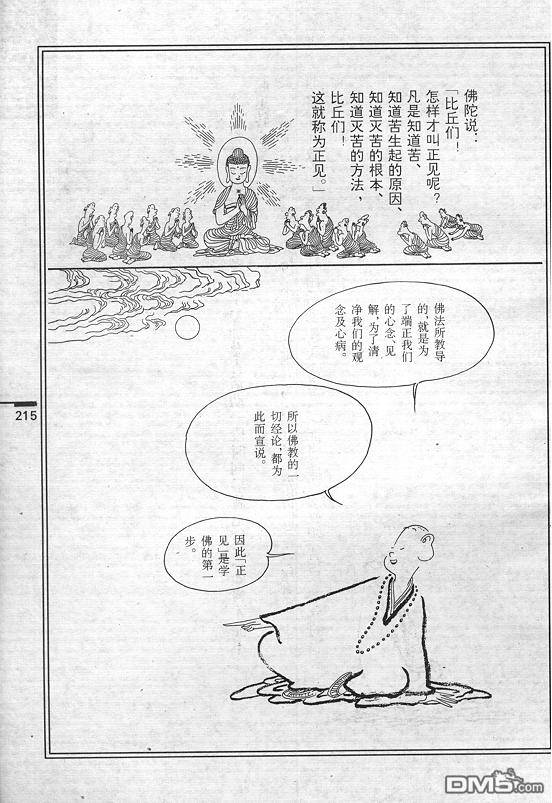 佛陀说：
「比丘们！
怎样才叫正见呢？
凡是知道苦、
知道苦生起的原因、
知道灭苦的根本、
知道灭苦的方法，
比丘们！
这就称为正见。」
佛法所教导
的，就是为
了端正我们
的心念、见
解，为了清
净我们的观
念及心病。
所以佛教的一
切经论，都为
此而宣说。
因此「正
见」是学
佛的第一
步。
215
DM5.com